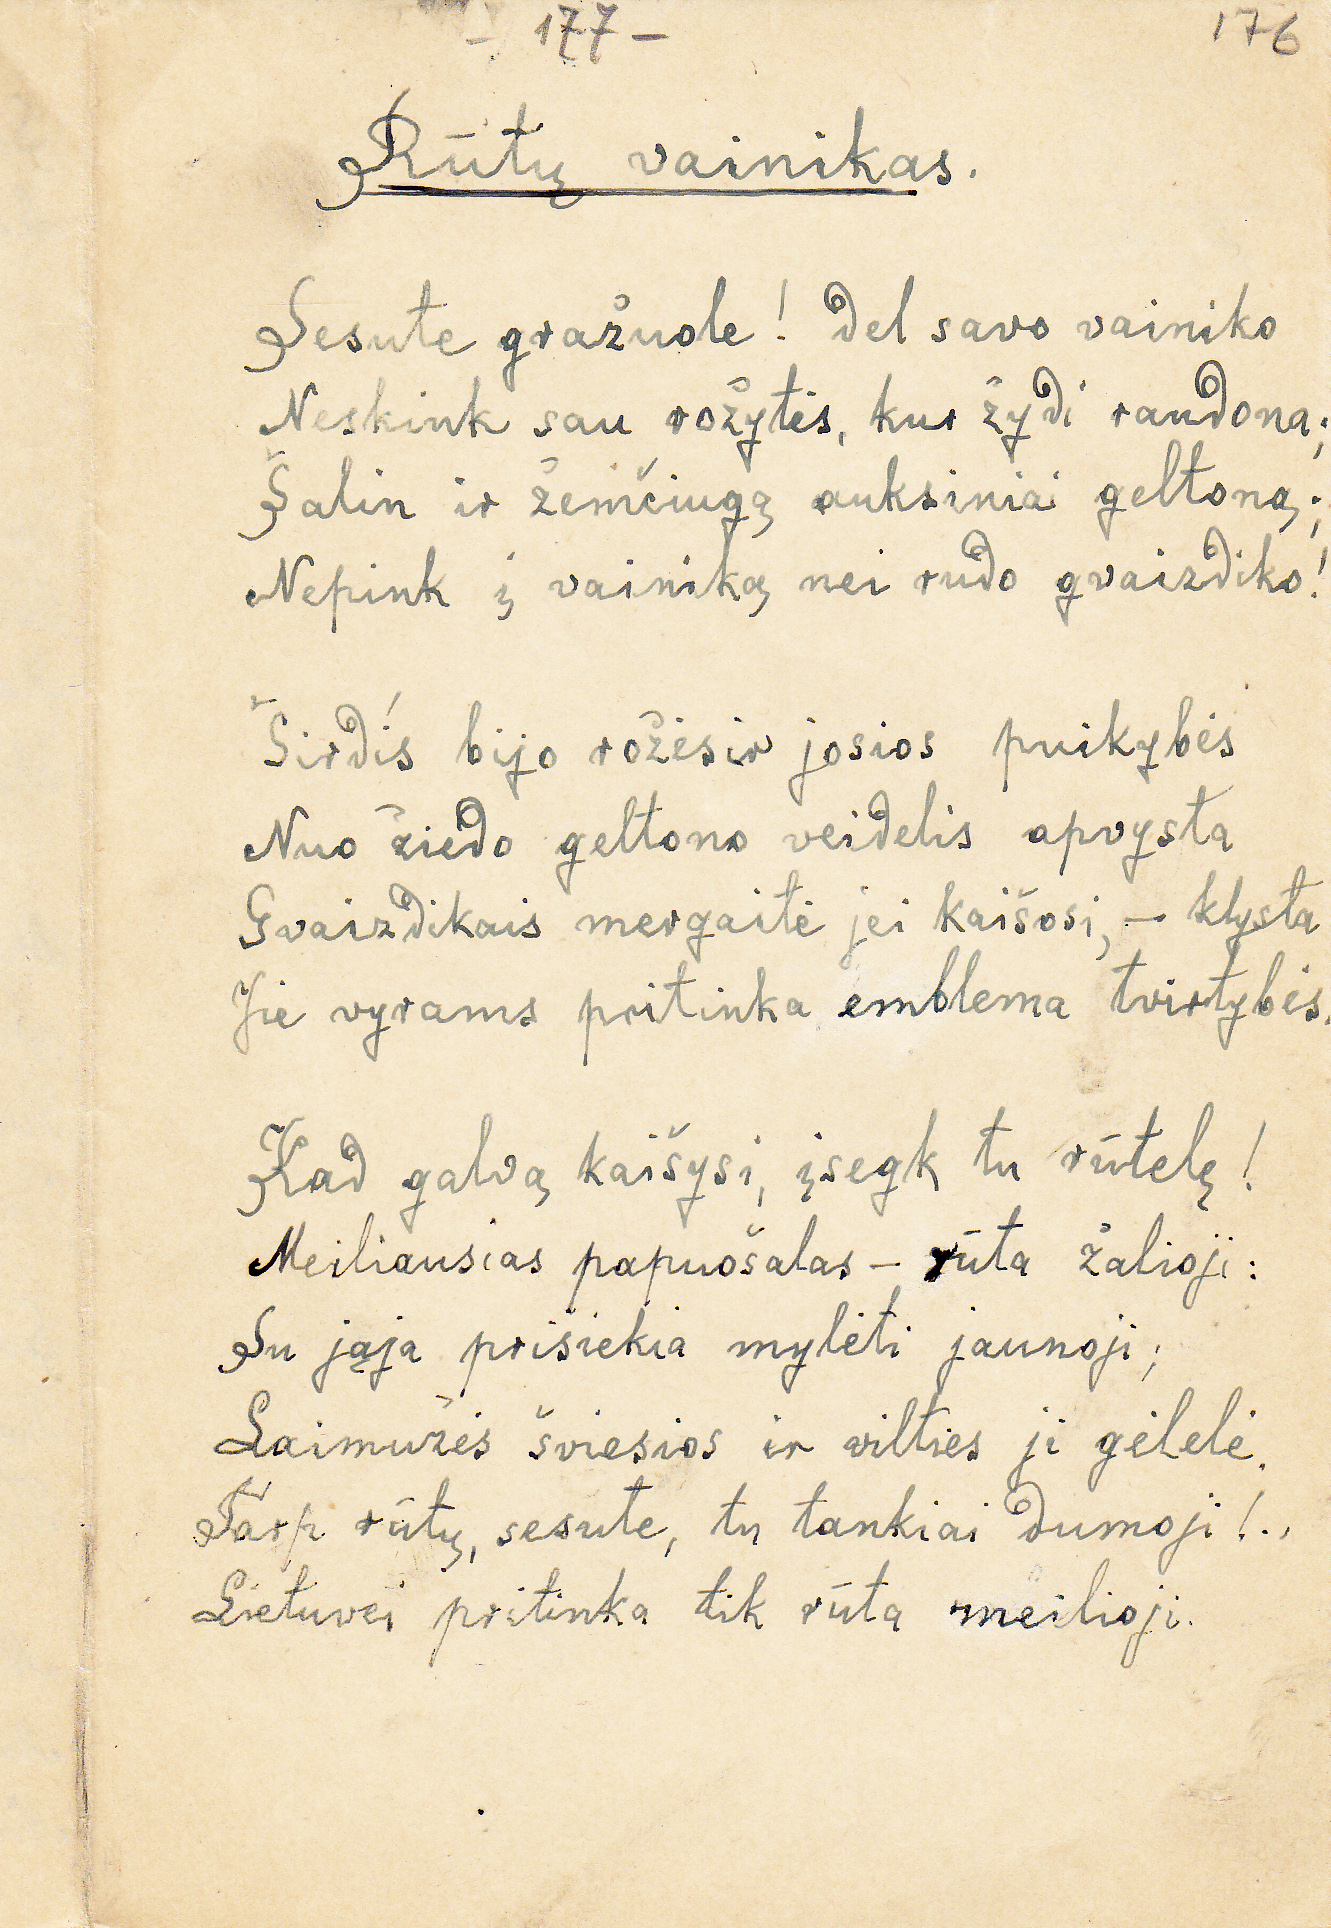 - 177 -
176
Rūtų vainikas.
Sesute gražuole! del savo vainiko
Neskink sau rožytės, kur žydi raudona;
Šalin ir žemčiugą auksiniai geltoną;
Nepink į vainiką nei rudo gvaizdiko!
Širdis bijo rožės ir josios puikybės
Nuo žiedo geltono veidelis apvysta
Gvaizdikais mergaitė jei kaišosi, – klysta
Jie vyrams pritinka emblema tvirtybės.
Kad galvą kaišysi, įsegk tu rūtelę!
Meiliausias papuošalas – rūta žalioji:
Su jąja prisiekia mylėti jaunoji;
Laimužės šviesios ir vilties ji gėlelė.
Tarp rūtų, sesute, tų tankiai dumoji!..
Lietuvei pritinka tik rūta meilioji.